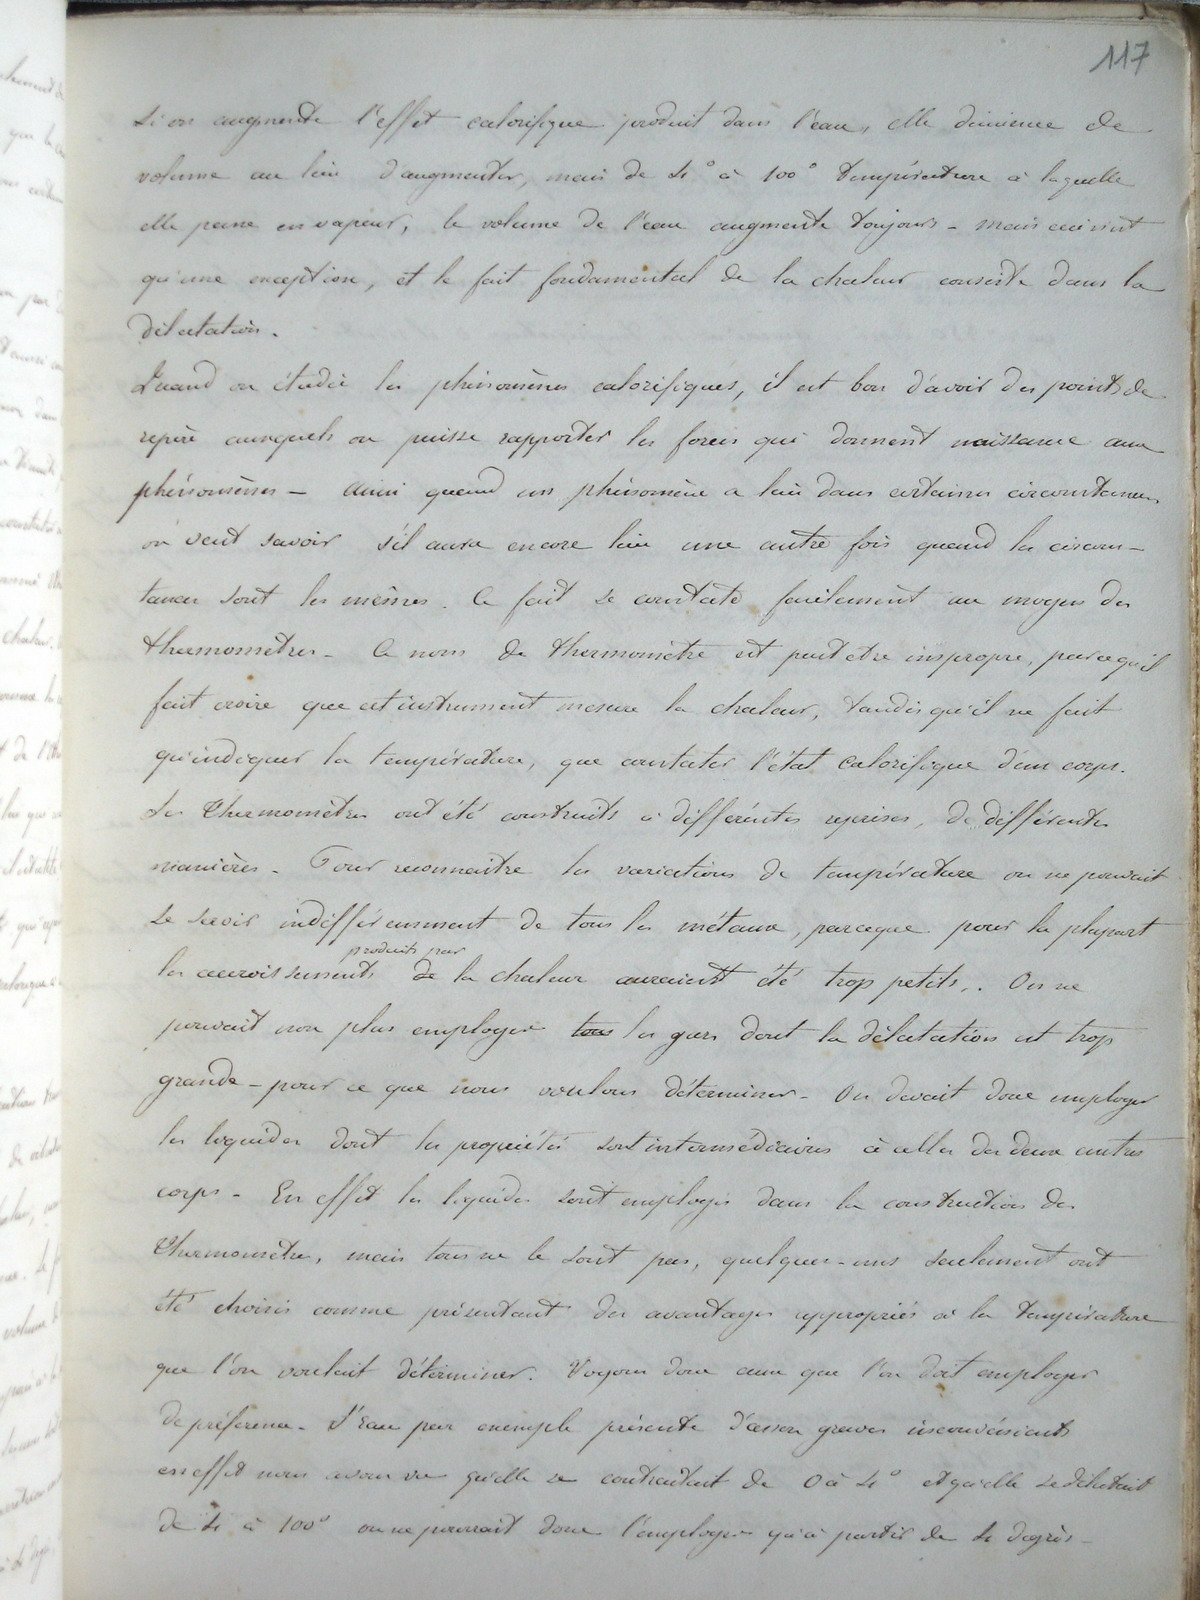 117
Si on augmente l'effet calorifique produit dans l'eau, elle diminue de
volume au lieu d'augmenter, mais de 4° à 100° température à laquelle
elle passe en vapeur, le volume de l'eau augmente toujours - mais ceci n'est
qu'une exception, et le fait fondamental de la chaleur consiste dans la
dilatation.
Quand on étudie les phénomènes calorifiques, il est bon d'avoir des points de
repère auxquels on puisse rapporter les forces qui donnent naissance aux
phénomènes - Ainsi quand un phénomène a lieu dans certaines circonstances
on veut savoir s'il aura encore lieu une autre fois quand les circons-
tances sont les mêmes. Ce fait se constate facilement au moyen des
thermomètres - Ce nom de thermomètre est peut etre impropre, parcequ'il
fait croire que cet instrument mesure la chaleur, tandis qu'il ne fait
qu'indiquer la température, que constater l'état calorifique d'un corps.
Les Thermomètres ont été construits à différentes reprises, de différentes
manières - Pour reconnaitre les variations de température on ne pouvait
se servir indifféremment de tous les métaux, parceque pour la plupart
produits par
les accroissements de la chaleur auraient été trop petits. On ne
pouvait non plus employer tous les gaz dont la dilatation est trop
grande - pour ce que nous voulons déterminer - On devait donc employer
les liquides dont les propriétés sont intermédiaires à celles des deux autres
corps - En effet les liquides sont employés dans la construction des
Thermomètres, mais tous ne le sont pas, quelques-uns seulement ont
été choisis comme présentant des avantages appropriés à la température
que l'on voulait déterminer. Voyons donc ceux que l'on doit employer
de préférence - L'Eau par exemple présente d'assez graves inconvénients
en effet nous avons vu qu'elle se contractait de 0 à 4° et qu'elle se dilatait
de 4 à 100° on ne pourrait donc l'employer qu'à partir de 4 degrés -